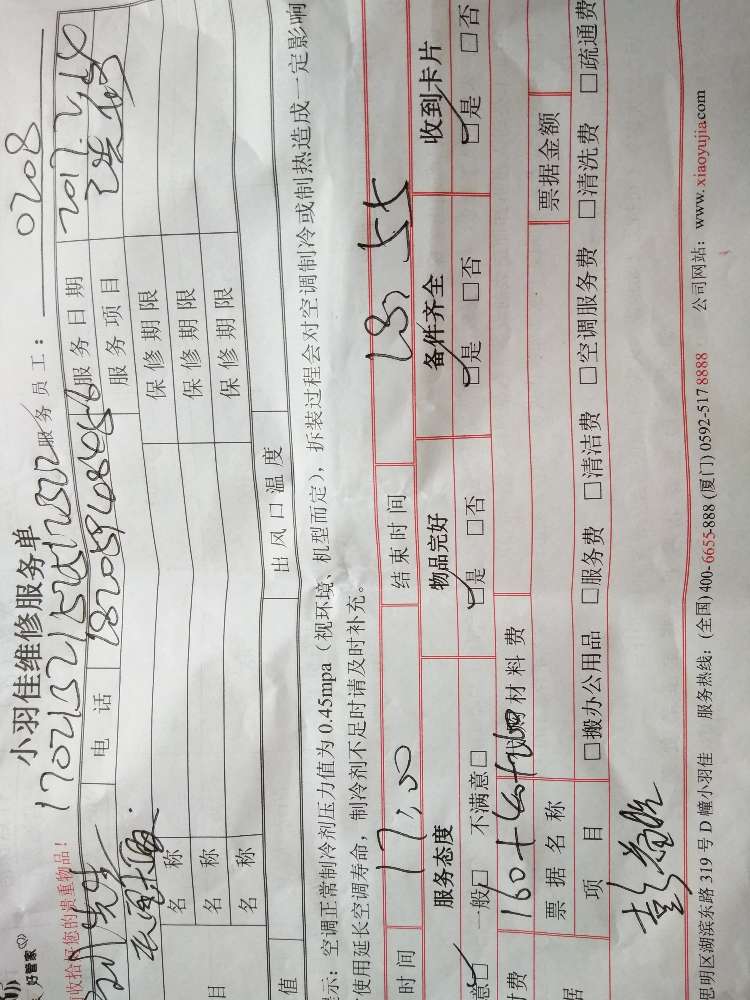 好管家
小羽佳维修服务单
收拾好您的贵重物品！
服务员工：0208
电话
服务日期 2017.2.20
服务项目
名称 保修期限
名称 保修期限
目 名称 保修期限
值 出风口温度
示：空调正常制冷剂压力值为0.45mpa（视环境、机型而定），拆装过程会对空调制冷或制热造成一定影响
使用延长空调寿命，制冷剂不足时请及时补充。
时间 17:00 结束时间 18:55
服务态度 物品完好 备件齐全 收到卡片
意□ 一般□ 不满意□ □是 □否 □是 □否 □是 □否
付费 160+40+260 材料费
票据名称 票据金额
据 项目 □搬办公用品 □服务费 □清洁费 □空调服务费 □清洗费 □疏通费
思明区湖滨东路319号D幢小羽佳 服务热线：(全国)400-6655-888 (厦门)0592-5178888 公司网站：www.xiaoyujia.com